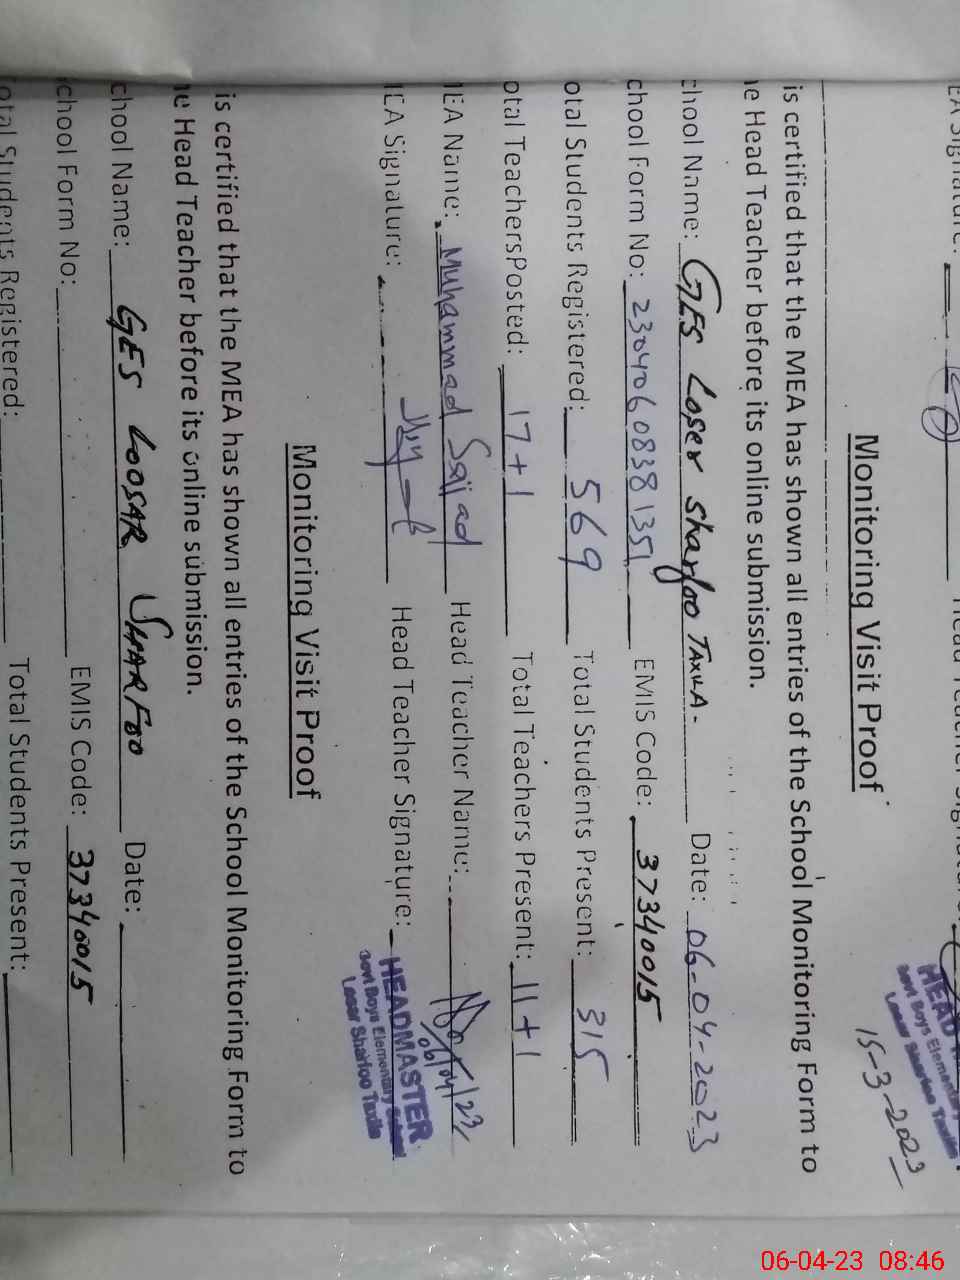 EA Signature:
HEAD
Govt Boys Elementary
Loser Sharfoo Taxila
15-3-2023
Monitoring Visit Proof
is certified that the MEA has shown all entries of the School Monitoring Form to
e Head Teacher before its online submission.
chool Name: GES Loser Sharfoo TAXILA. Date: 06-04-2023
chool Form No: EMIS Code: 37340015
otal Students Registered: 569 Total Students Present: 315
otal TeachersPosted: 17+1 Total Teachers Present: 11+1
IEA Name: Muhammad Sajjad Head Teacher Name:
06/04/23
IEA Signature: Head Teacher Signature:
HEADMASTER
Govt Boys Elementary School
Loser Sharfoo Taxila
Monitoring Visit Proof
is certified that the MEA has shown all entries of the School Monitoring Form to
e Head Teacher before its online submission.
chool Name: GES LOOSAR SHARFOO Date:
chool Form No: EMIS Code: 37340015
otal Students Registered: Total Students Present:
06-04-23 08:46